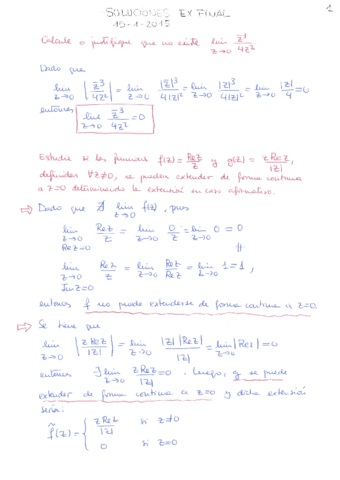 SOLUCIONES EX FINAL 1
19-1-2015
Calcule o justifique que no existe lim z→0 z̄³/4z²
Dado que
lim z→0 |z̄³/4z²| = lim z→0 |z̄|³/4|z|² = lim z→0 |z|³/4|z|² = lim z→0 |z|/4 = 0
entonces lim z→0 z̄³/4z² = 0
Estudie si las funciones f(z) = Rez/z y g(z) = zRez/|z|,
definidas ∀z≠0, se pueden extender de forma continua
a z=0 determinando la extensión en caso afirmativo.
⇒ Dado que ∄ lim z→0 f(z), pues
lim z→0 Rez=0 Rez/z = lim z→0 0/z = lim z→0 0 = 0
∦
lim z→0 Imz=0 Rez/z = lim z→0 Rez/Rez = lim z→0 1 = 1,
entonces f no puede extenderse de forma continua a z=0.
⇒ Se tiene que
lim z→0 |zRez/|z|| = lim z→0 |z||Rez|/|z| = lim z→0 |Rez| = 0
entonces ∃ lim z→0 zRez/|z| = 0. Luego, g se puede
extender de forma continua a z=0 y dicha extensión
sería:
f̃(z) = { zRez/|z| si z≠0
0 si z=0